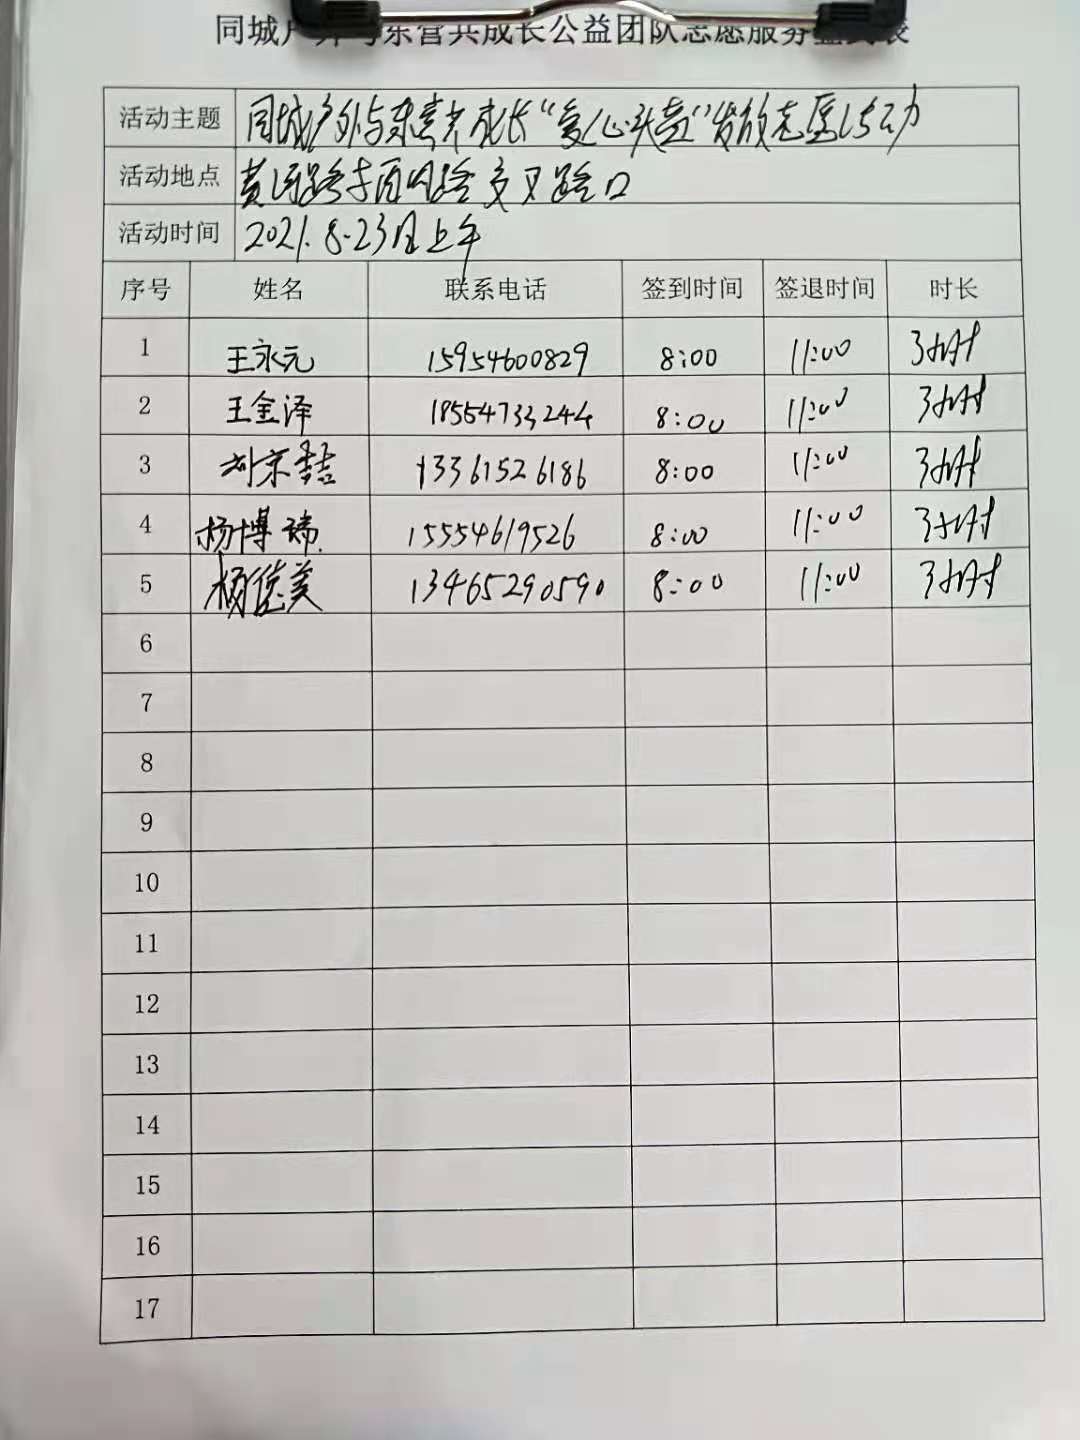 同城户外与东营共成长公益团队志愿服务签到表
活动主题 同城户外与东营共成长“爱心头盔”发放志愿活动
活动地点 黄河路与西四路交叉路口
活动时间 2021.8.23日上午
序号 姓名 联系电话 签到时间 签退时间 时长
1 王永元 15954600829 8:00 11:00 3小时
2 王金泽 18554733244 8:00 11:00 3小时
3 刘京喆 13361526186 8:00 11:00 3小时
4 杨博瑞 15554619526 8:00 11:00 3小时
5 杨佳美 13465290590 8:00 11:00 3小时
6
7
8
9
10
11
12
13
14
15
16
17